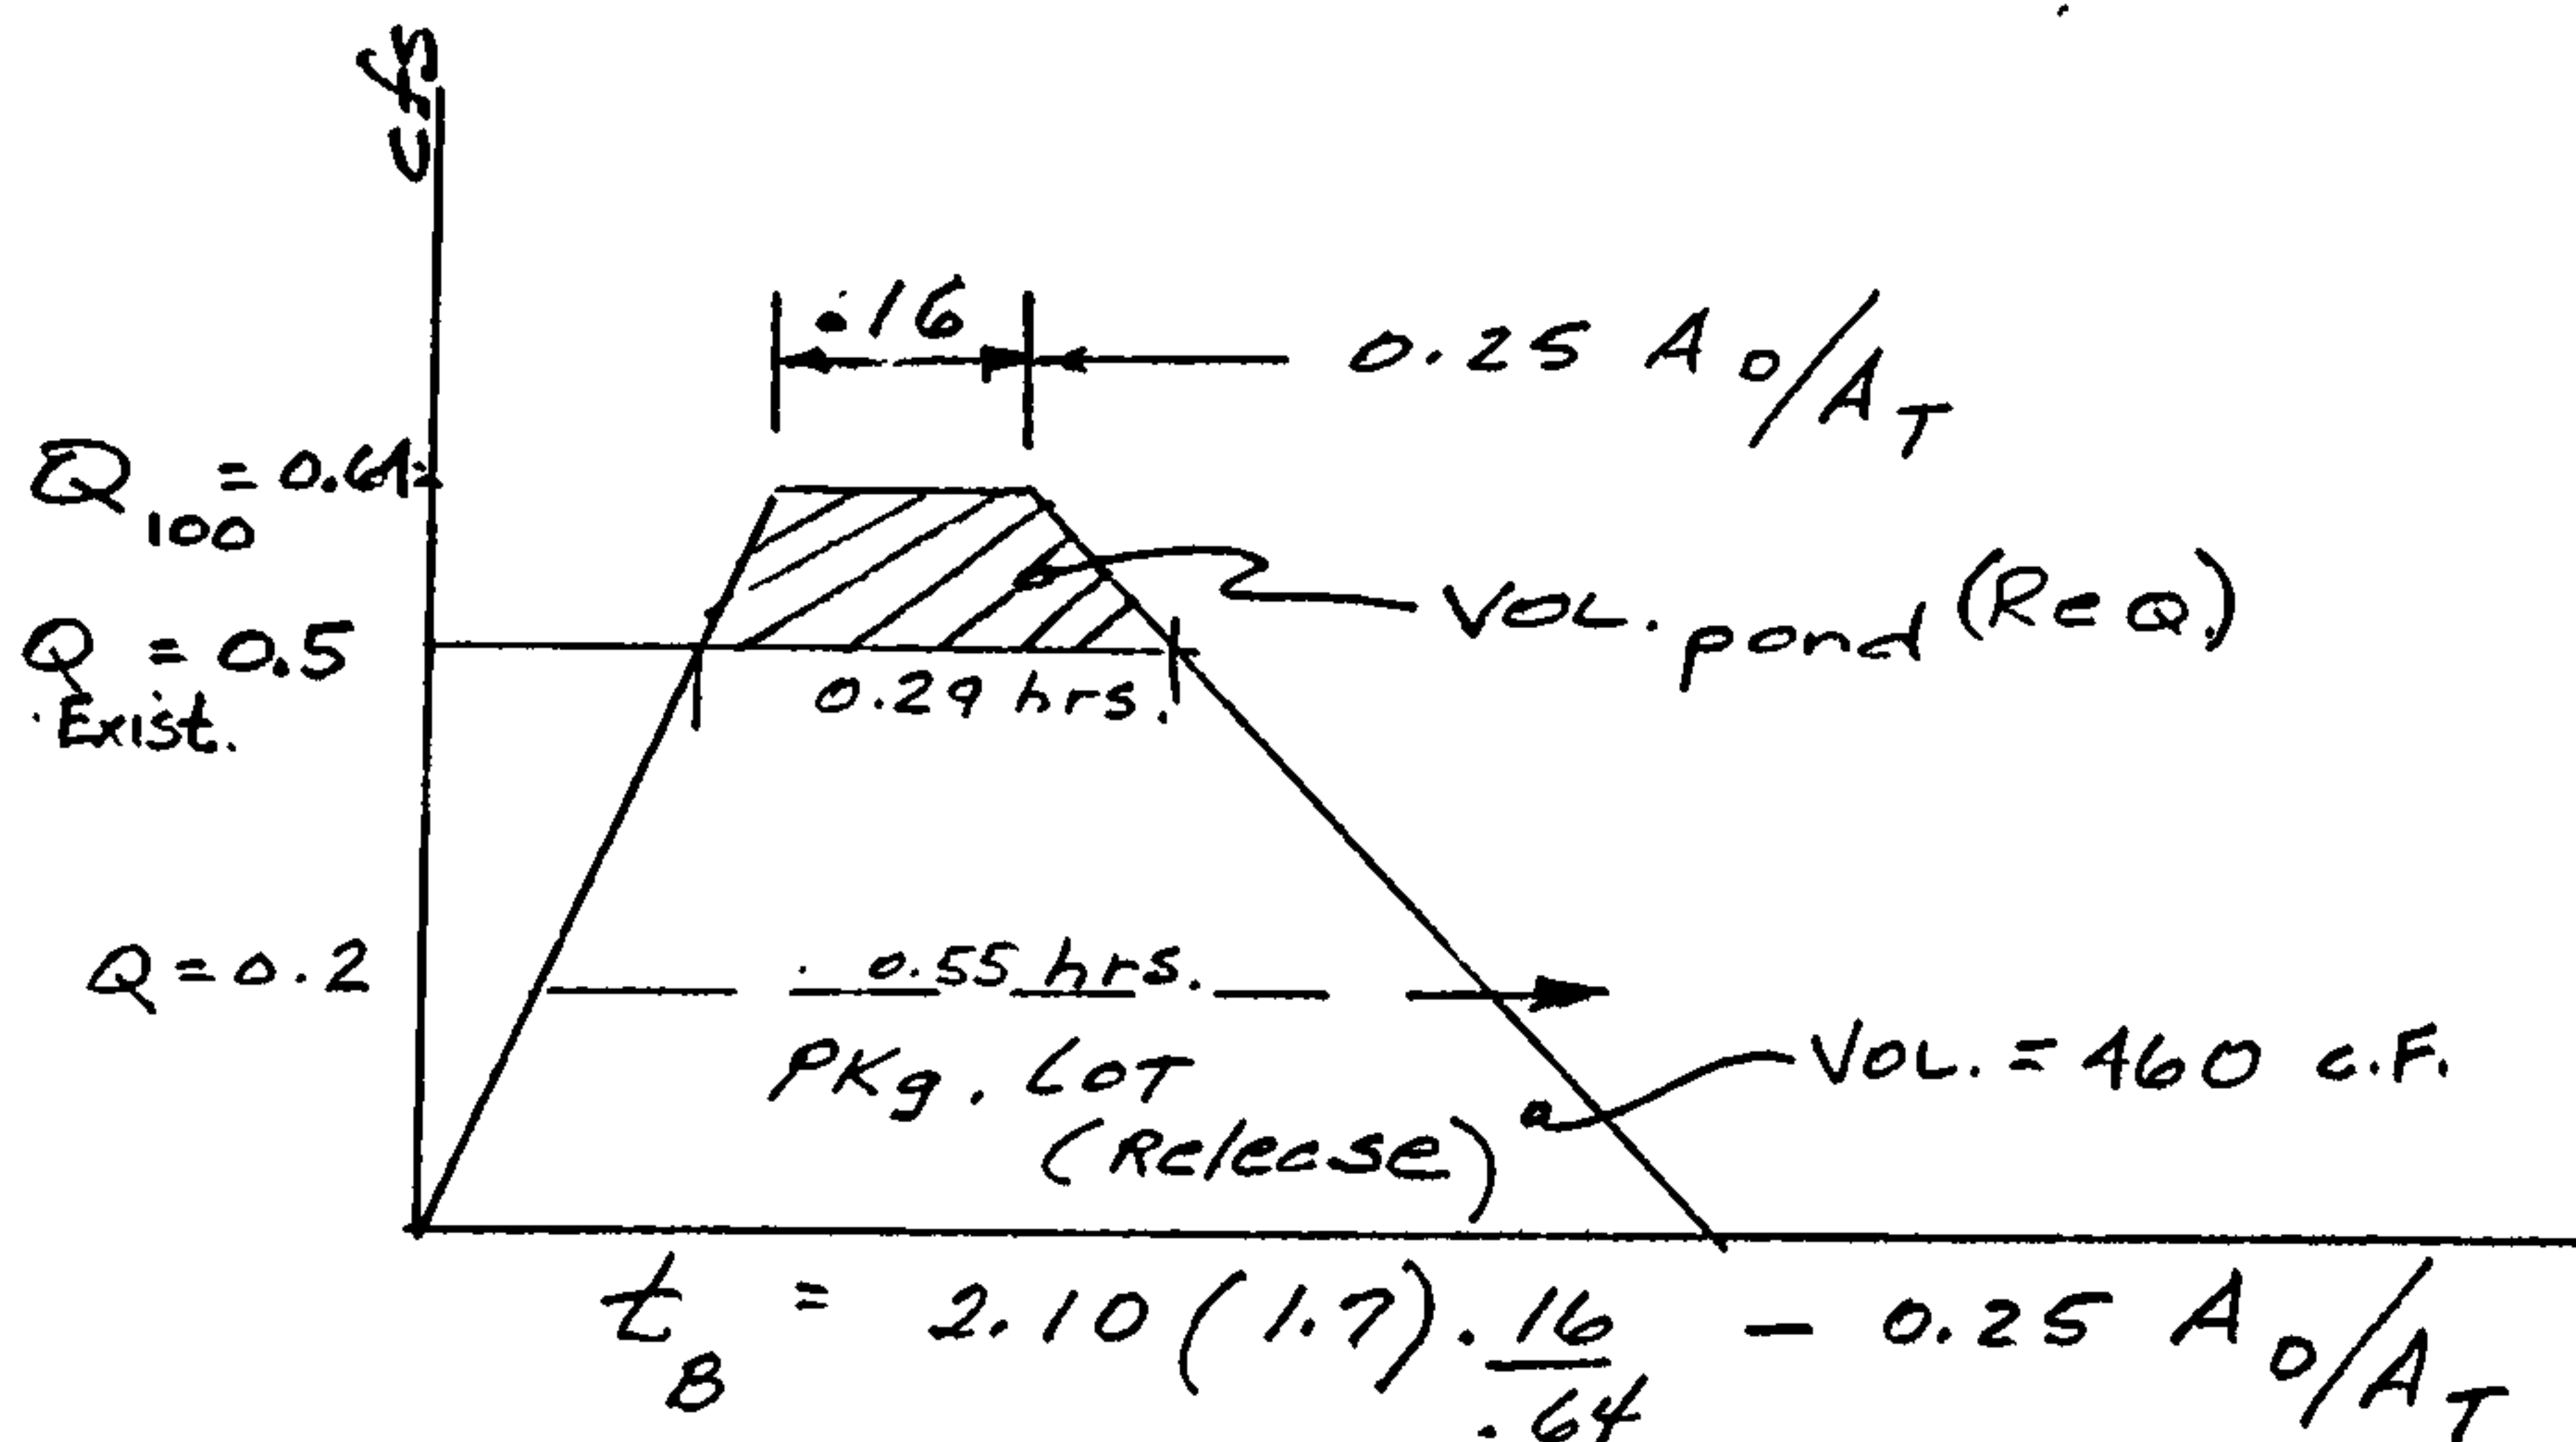 cfs
.16
0.25 A D/A T
Q 100 = 0.64
Q = 0.5
Exist.
VOL. pond (Req.)
0.29 hrs.
Q = 0.2
0.55 hrs.
PKg. LOT
(Release)
VOL. = 460 c.F.
t B = 2.10 (1.7) .16/.64 - 0.25 A D/A T